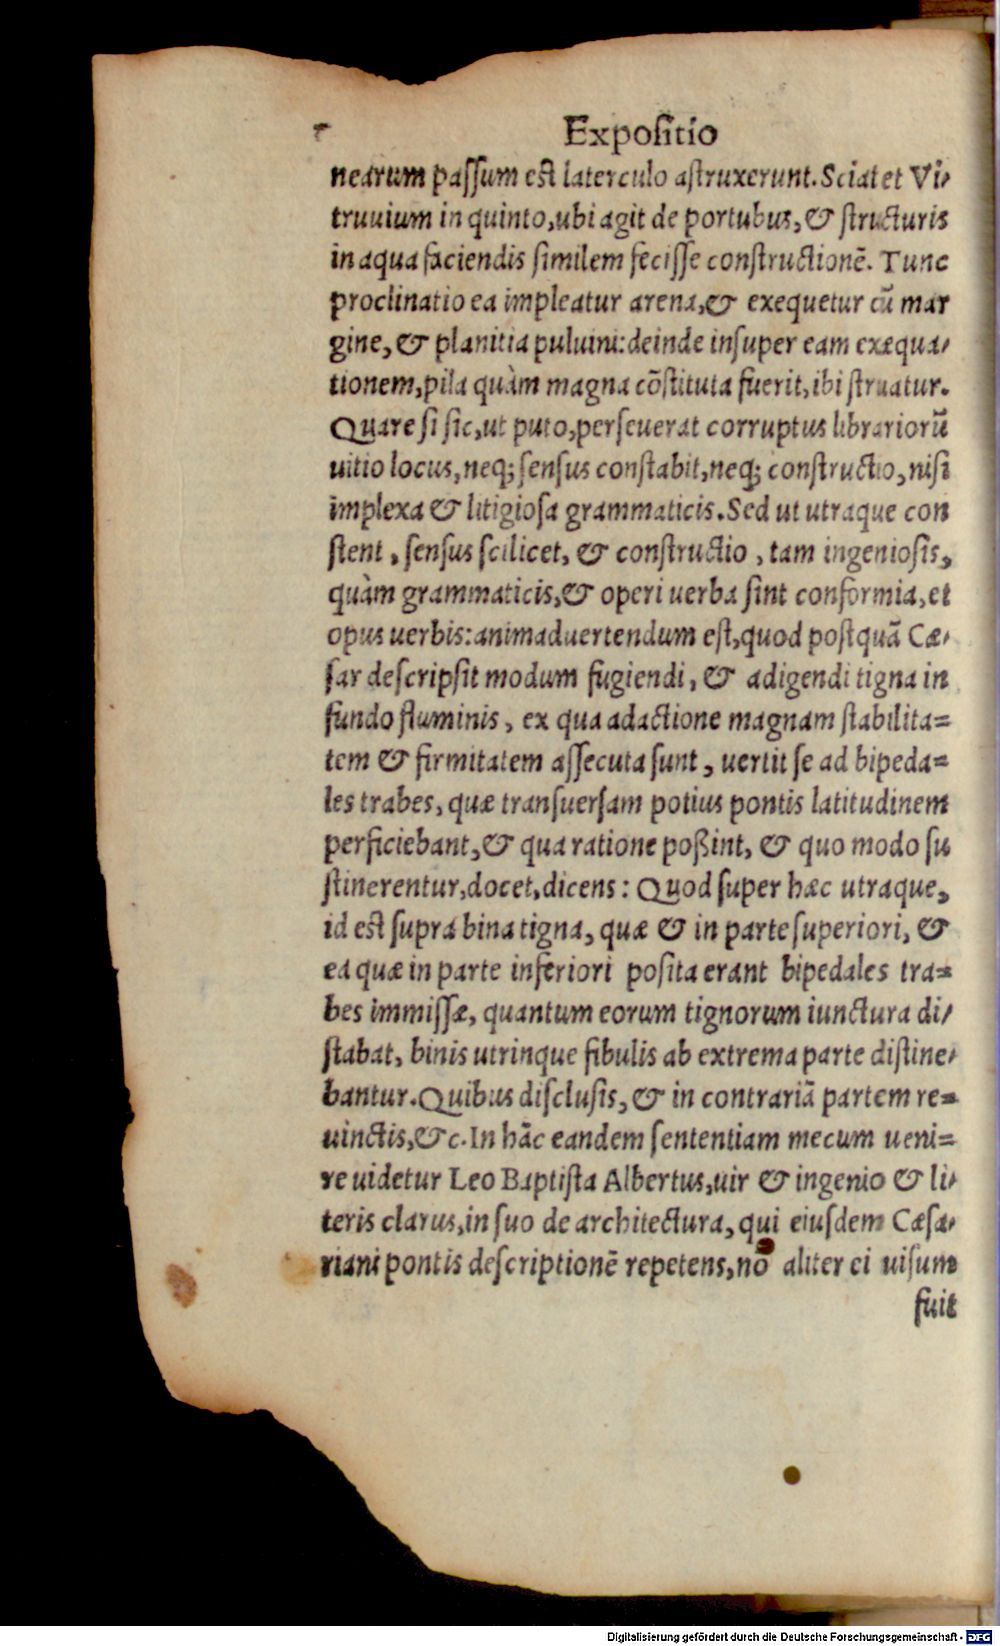 Expositio
nearum passum est laterculo astruxerunt. Sciat et Vi-
truuium in quinto, ubi agit de portubus, & structuris
in aqua faciendis similem fecisse constructionē. Tunc
proclinatio ea impleatur arena, & exequetur cū mar
gine, & planitia puluini: deinde insuper eam exæqua-
tionem, pila quàm magna cōstituta fuerit, ibi struatur.
Quare si sic, ut puto, perseuerat corruptus librariorū
uitio locus, neq; sensus constabit, neq; constructio, nisi
implexa & litigiosa grammaticis. Sed ut utraque con
stent, sensus scilicet, & constructio, tam ingeniosis,
quàm grammaticis, & operi uerba sint conformia, et
opus uerbis: animaduertendum est, quod postquā Cæ-
sar descripsit modum fugiendi, & adigendi tigna in
fundo fluminis, ex qua adactione magnam stabilita-
tem & firmitatem assecuta sunt, uertit se ad bipeda-
les trabes, quæ transuersam potius pontis latitudinem
perficiebant, & qua ratione poßint, & quo modo su
stinerentur, docet, dicens: Quod super hæc utraque,
id est supra bina tigna, quæ & in parte superiori, &
ea quæ in parte inferiori posita erant bipedales tra-
bes immissæ, quantum eorum tignorum iunctura di-
stabat, binis utrinque fibulis ab extrema parte distine-
bantur. Quibus disclusis, & in contrariā partem re-
uinctis, &c. In hāc eandem sententiam mecum ueni-
re uidetur Leo Baptista Albertus, uir & ingenio & li-
teris clarus, in suo de architectura, qui eiusdem Cæsa-
riani pontis descriptionē repetens, nō aliter ei uisum
fuit
Digitalisierung gefördert durch die Deutsche Forschungsgemeinschaft - DFG